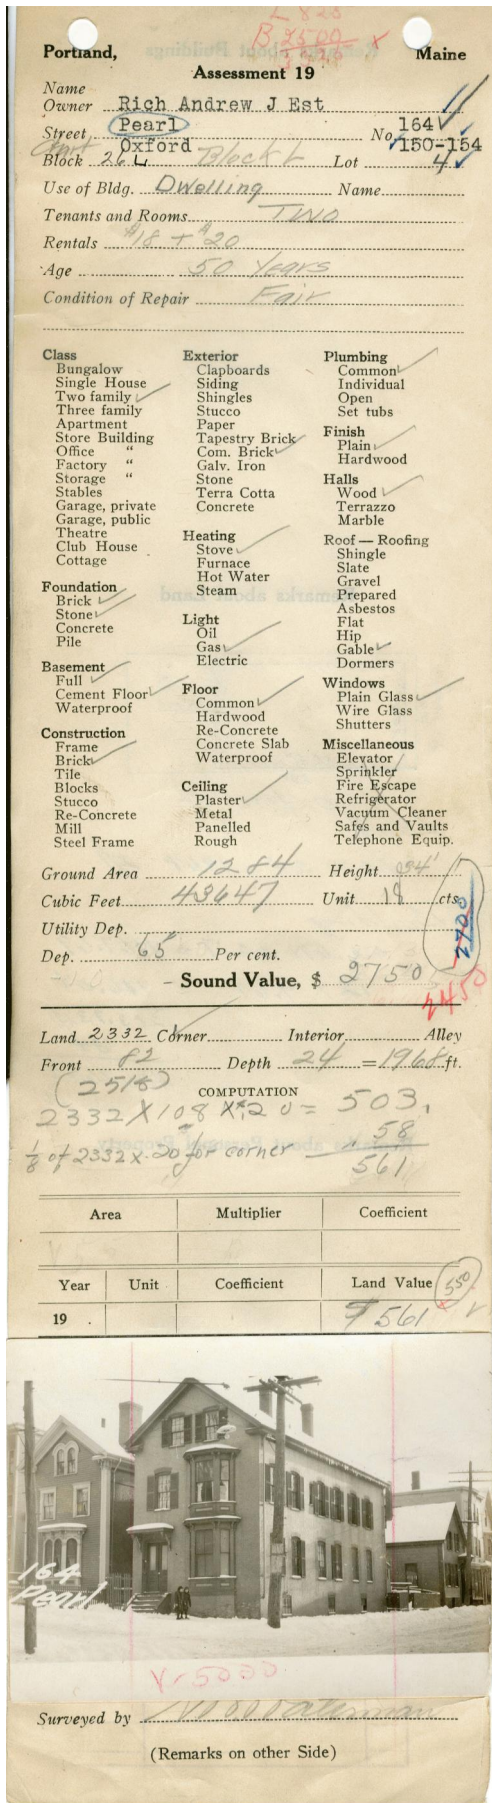 L 825
B 3500
Portland, Maine
Assessment 19
Name
Owner Rich Andrew J Est
Street Pearl No. 164
Oxford 150-154
Block 26 L Block L Lot 4
Use of Bldg. Dwelling Name
Tenants and Rooms Two
Rentals $18 + $20
Age 50 Years
Condition of Repair Fair
Class
Bungalow
Single House
Two family
Three family
Apartment
Store Building
Office "
Factory "
Storage "
Stables
Garage, private
Garage, public
Theatre
Club House
Cottage
Foundation
Brick
Stone
Concrete
Pile
Basement
Full
Cement Floor
Waterproof
Construction
Frame
Brick
Tile
Blocks
Stucco
Re-Concrete
Mill
Steel Frame
Exterior
Clapboards
Siding
Shingles
Stucco
Paper
Tapestry Brick
Com. Brick
Galv. Iron
Stone
Terra Cotta
Concrete
Heating
Stove
Furnace
Hot Water
Steam
Light
Oil
Gas
Electric
Floor
Common
Hardwood
Re-Concrete
Concrete Slab
Waterproof
Ceiling
Plaster
Metal
Panelled
Rough
Plumbing
Common
Individual
Open
Set tubs
Finish
Plain
Hardwood
Halls
Wood
Terrazzo
Marble
Roof — Roofing
Shingle
Slate
Gravel
Prepared
Asbestos
Flat
Hip
Gable
Dormers
Windows
Plain Glass
Wire Glass
Shutters
Miscellaneous
Elevator
Sprinkler
Fire Escape
Refrigerator
Vacuum Cleaner
Safes and Vaults
Telephone Equip.
Ground Area 1284 Height 34'
Cubic Feet 43647 Unit 18 cts.
Utility Dep.
2700
Dep. 65 Per cent.
Sound Value, $ 2750
2450
Land 2332 Corner Interior Alley
Front 82 Depth 24 = 1968 ft.
(2518)
COMPUTATION
2332 X 108 X .20 = 503.
58
1/8 of 2332 x .20 for corner
561
Area Multiplier Coefficient
Year Unit Coefficient Land Value 550
19 . $561
164
Pearl
V-5000
Surveyed by
(Remarks on other Side)